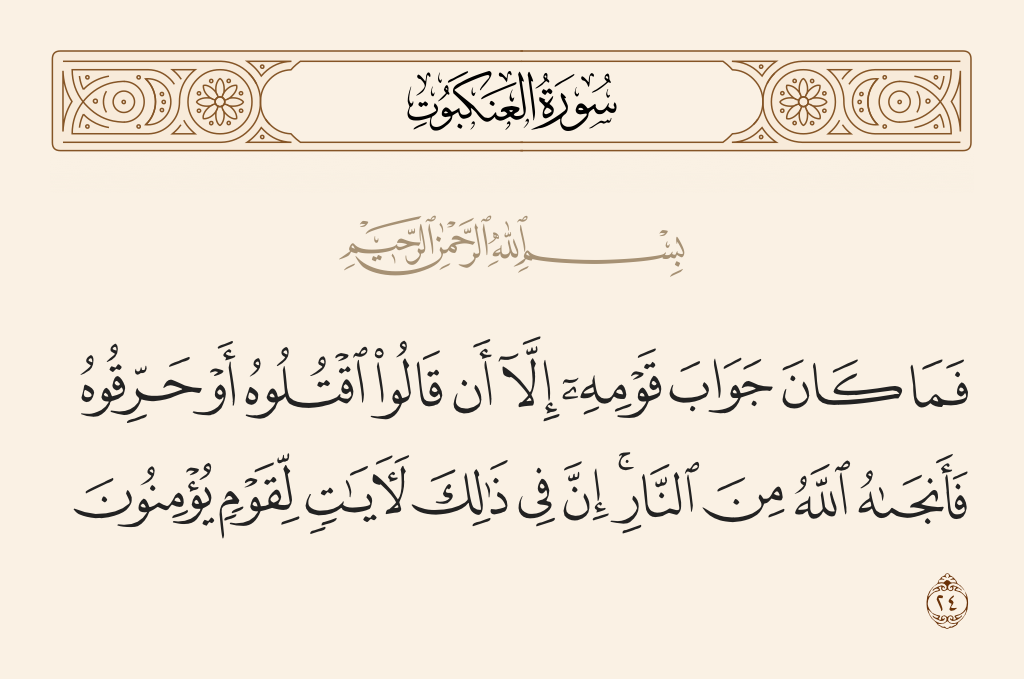 سُورَةُ العَنكَبُوتِ
بِسْمِ ٱللَّهِ ٱلرَّحْمَٰنِ ٱلرَّحِيمِ
فَمَا كَانَ جَوَابَ قَوْمِهِۦٓ إِلَّآ أَن قَالُوا۟ ٱقْتُلُوهُ أَوْ حَرِّقُوهُ
فَأَنجَىٰهُ ٱللَّهُ مِنَ ٱلنَّارِ ۚ إِنَّ فِى ذَٰلِكَ لَـَٔايَـٰتٍ لِّقَوْمٍ يُؤْمِنُونَ
٢٤